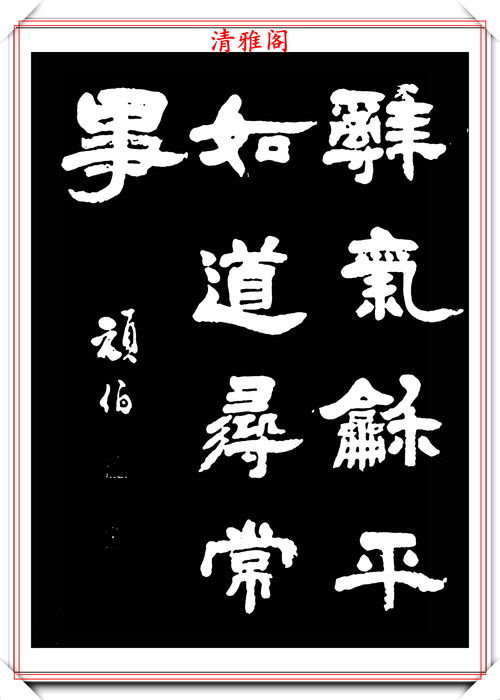 清雅阁
辭氣龢平
如道尋常
事
頑伯